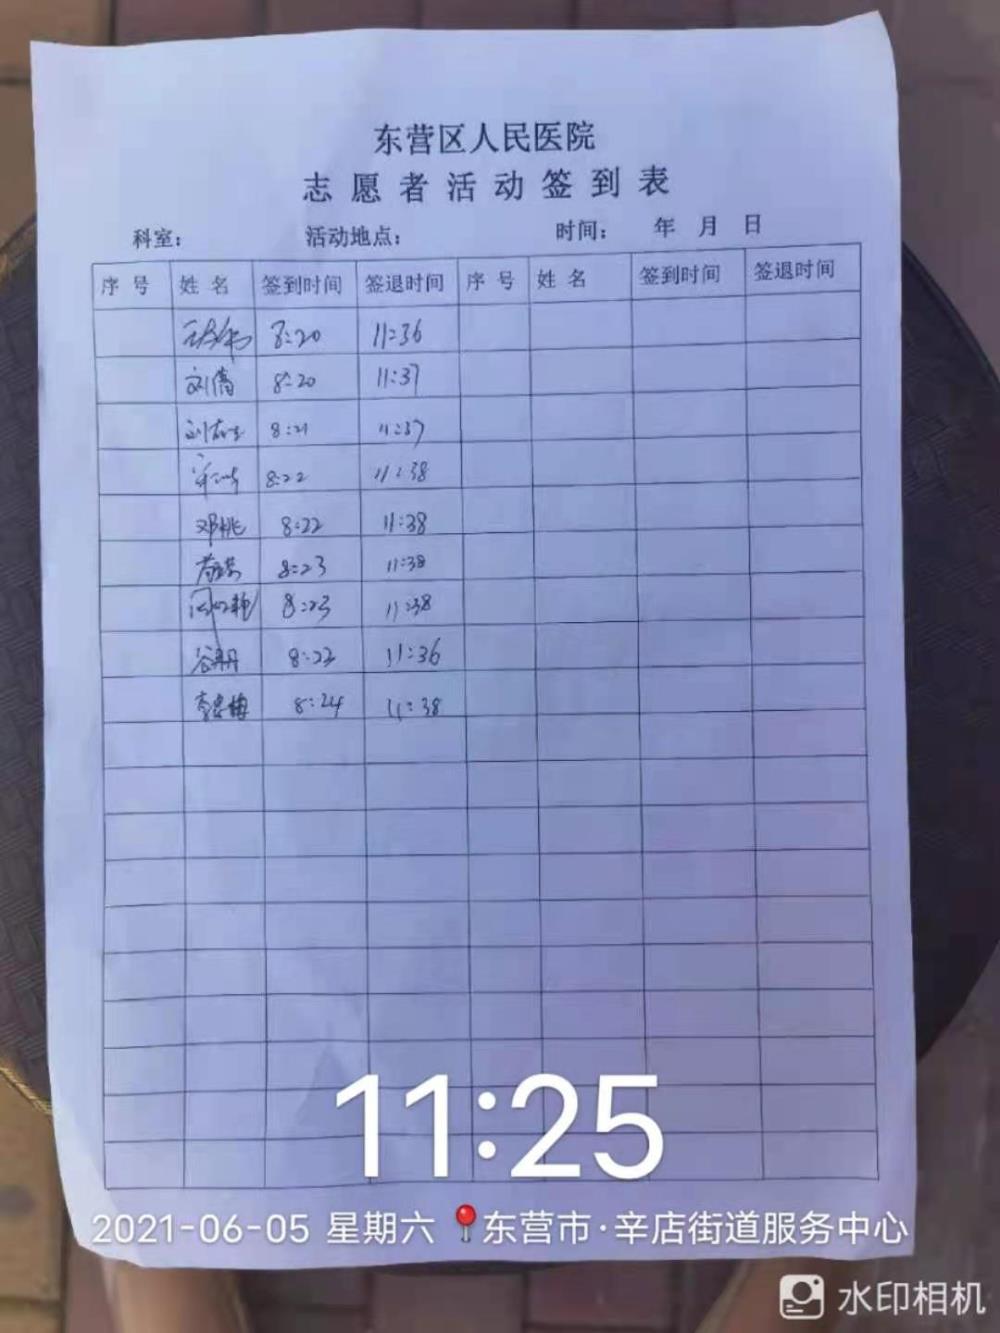 东营区人民医院
志愿者活动签到表
科室： 活动地点： 时间： 年 月 日
序号 姓名 签到时间 签退时间 序号 姓名 签到时间 签退时间
8:20 11:36
刘倩 8:20 11:37
8:21 11:37
8:22 11:38
邓桃 8:22 11:38
8:23 11:38
8:23 11:38
谷丹丹 8:23 11:36
8:24 11:38
11:25
2021-06-05 星期六 东营市·辛店街道服务中心
水印相机